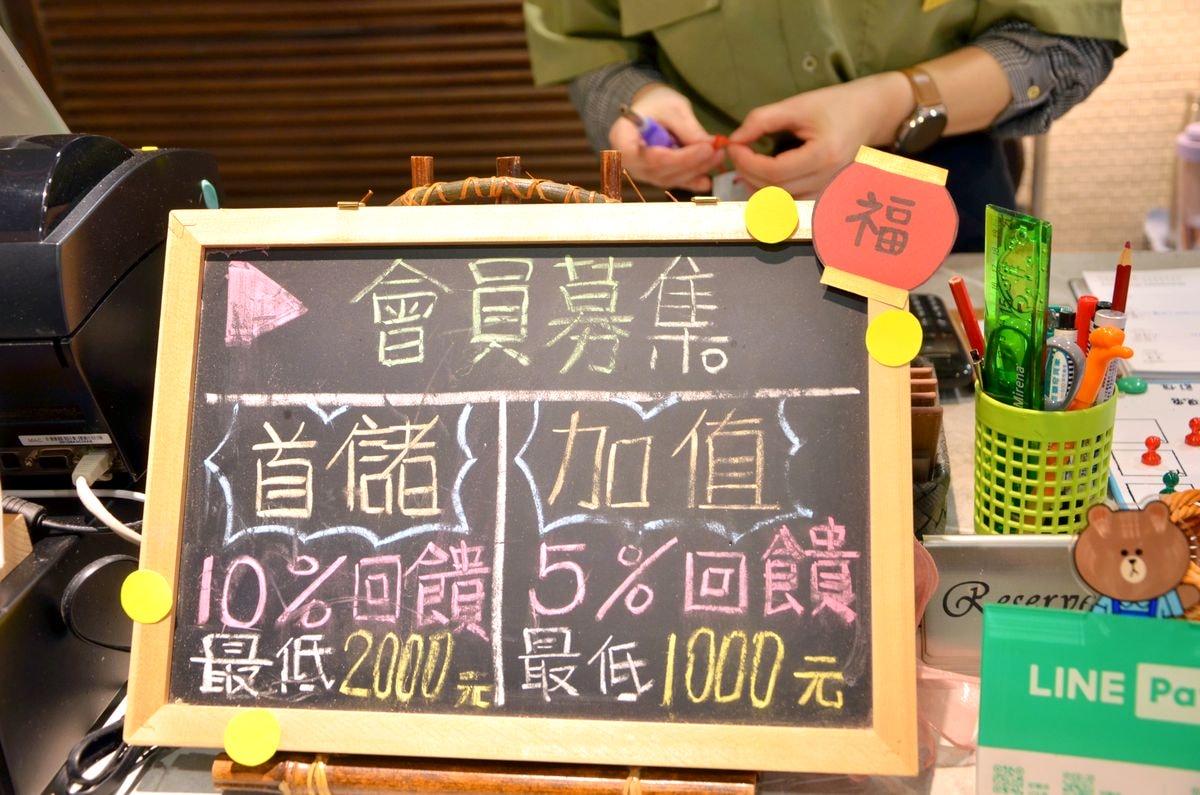 福
會員募集。
首儲
10%回饋
最低2000元
加值
5%回饋
最低1000元
Mirena
Reserve
LINE Pa
MAC